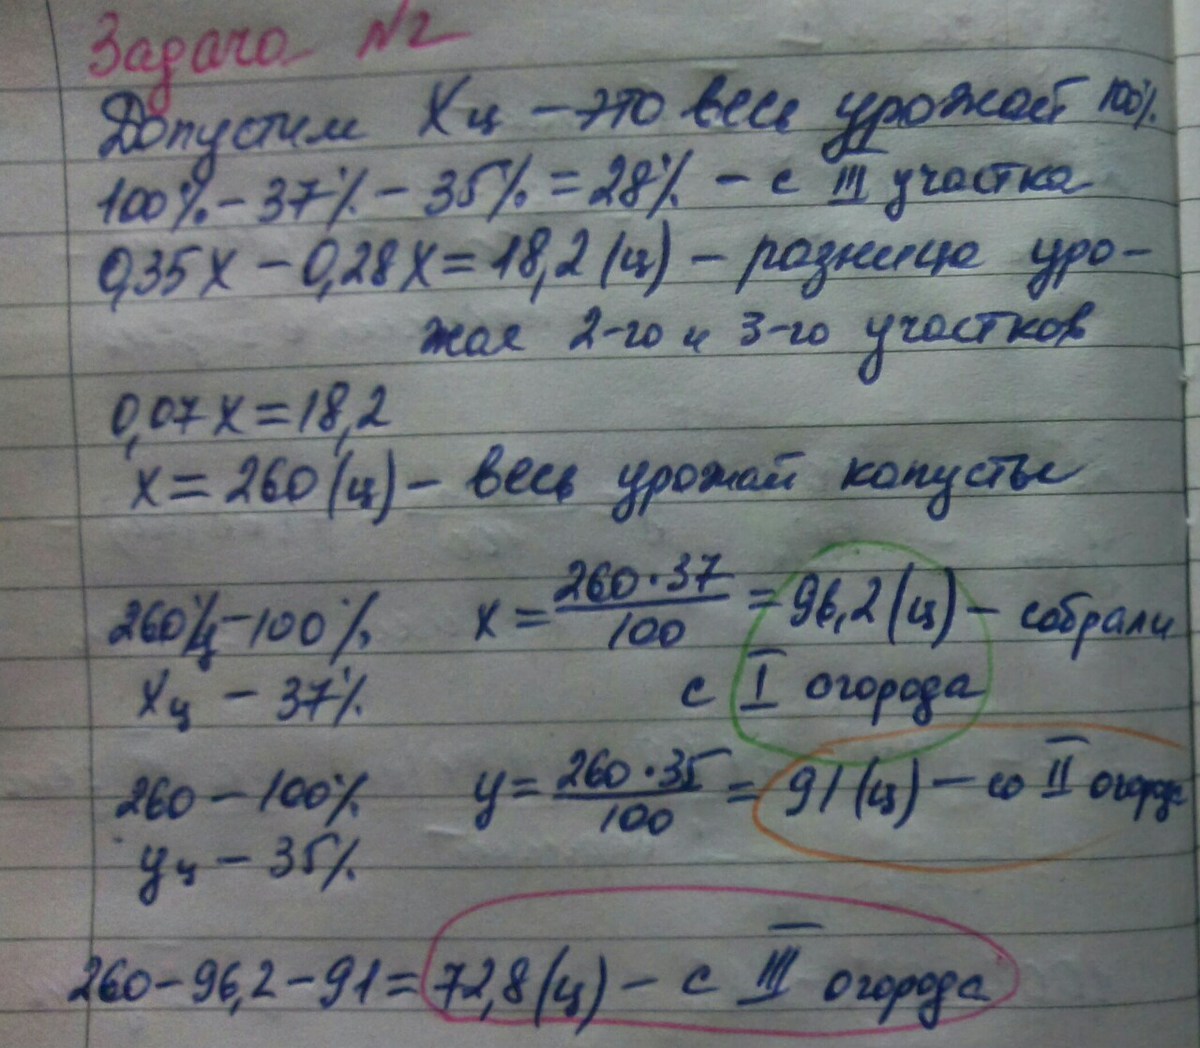 Задача №2
Допустим Хц – это весь урожай 100%
100% – 37% – 35% = 28% – с III участка
0,35х – 0,28х = 18,2 (ц) – разница уро-
жая 2-го и 3-го участков
0,07х = 18,2
х = 260 (ц) – весь урожай капусты
260ц – 100% х = 260·37/100 = 96,2 (ц) – собрали
хц – 37% с I огорода
260 – 100% у = 260·35/100 = 91 (ц) – со II огорода
уц – 35%
260 – 96,2 – 91 = 72,8 (ц) – с III огорода